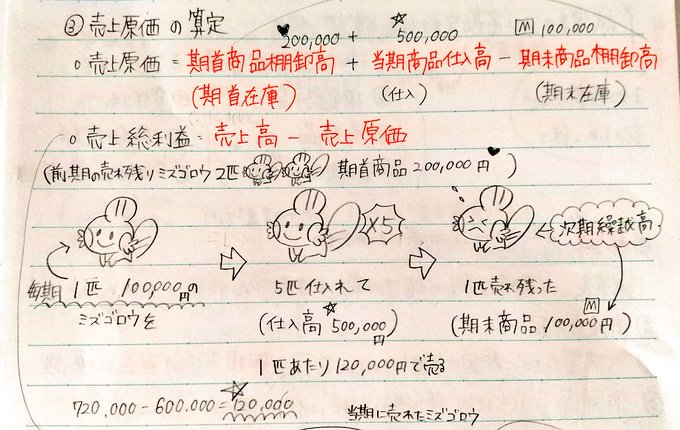 ③売上原価の算定
200,000 + 500,000 M 100,000
○売上原価 = 期首商品棚卸高 + 当期商品仕入高 - 期末商品棚卸高
(期首在庫) (仕入) (期末在庫)
○売上総利益 = 売上高 - 売上原価
(前期の売れ残りミズゴロウ2匹 期首商品200,000円)
×5
次期繰越高
毎期1匹 100,000円の
ミズゴロウを
5匹仕入れて
(仕入高 500,000円)
1匹売れ残った
M
(期末商品 100,000円)
1匹あたり120,000円で売る
720,000-600,000=120,000
当期に売れたミズゴロウ